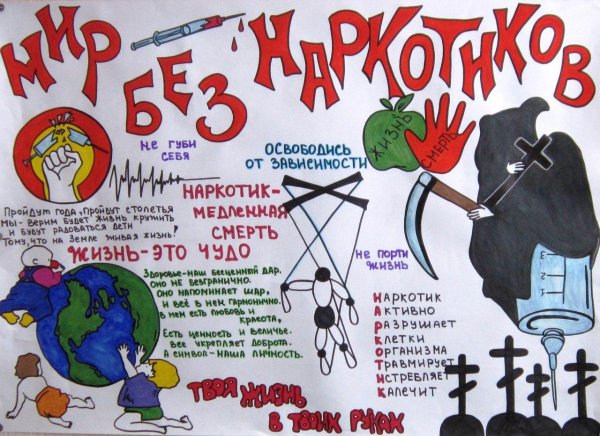 МИР
БЕЗ НАРКОТИКОВ
НЕ ГУБИ
СЕБЯ
ОСВОБОДИСЬ
ОТ ЗАВИСИМОСТИ
ЖИЗНЬ
СМЕРТЬ
НАРКОТИК-
МЕДЛЕННАЯ
СМЕРТЬ
Пройдут года, пройдут столетья
Мы - верим будет жизнь кружить
и будут радоваться дети
Тому, что на Земле живая жизнь!
ЖИЗНЬ-ЭТО ЧУДО
НЕ ПОРТИ
ЖИЗНЬ
Здоровье-наш бесценный дар.
Оно не безгранично.
Оно напоминает шар,
и всё в нем гармонично.
В нем есть любовь и
красота,
Есть ценность и величье.
Вве укрепляет доброта.
А символ-наша личность.
НАРКОТИК
АКТИВНО
РАЗРУШАЕТ
КЛЕТКИ
ОРГАНИЗМА
ТРАВМИРУЕТ
ИСТРЕБЛЯЕТ
КАЛЕЧИТ
НАРКОТИК
3
2
1
ТВОЯ ЖИЗНЬ
В ТВОИХ РУКАХ